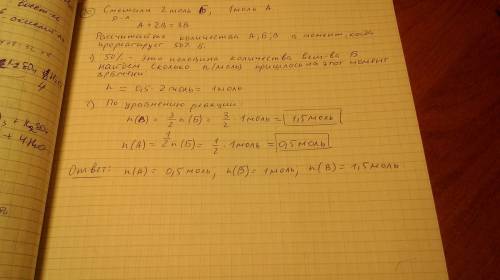 Смешали 2 моль Б, 1 моль А
р-я
А + 2Б = 3В
Рассчитать количества А, Б, В в момент, когда
прореагирует 50% Б.
1) 50% - это половина количества вещ-ва Б
найдём сколько n(моль) пришлось на этот момент
времени
n = 0,5 · 2 моль = 1 моль
2) По уравнению реакции:
n(В) = 3/2 n(Б) = 3/2 · 1 моль = 1,5 моль
n(А) = 1/2 n(Б) = 1/2 · 1 моль = 0,5 моль
Ответ: n(А) = 0,5 моль, n(Б) = 1 моль, n(В) = 1,5 моль
+ 4H2O